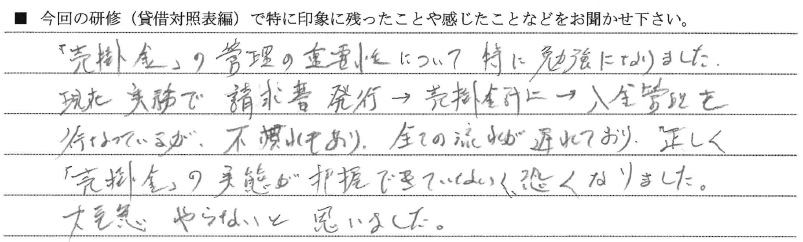 ■ 今回の研修（貸借対照表編）で特に印象に残ったことや感じたことなどをお聞かせ下さい。
「売掛金」の管理の重要性について 特に勉強になりました.
現在 実務で 請求書 発行→売掛金計上→入金管理を
行なっているが、不慣れもあり、全ての流れが遅れており、正しく
「売掛金」の実態が把握できていないく、恐くなりました。
大至急 やらないと 思いました。